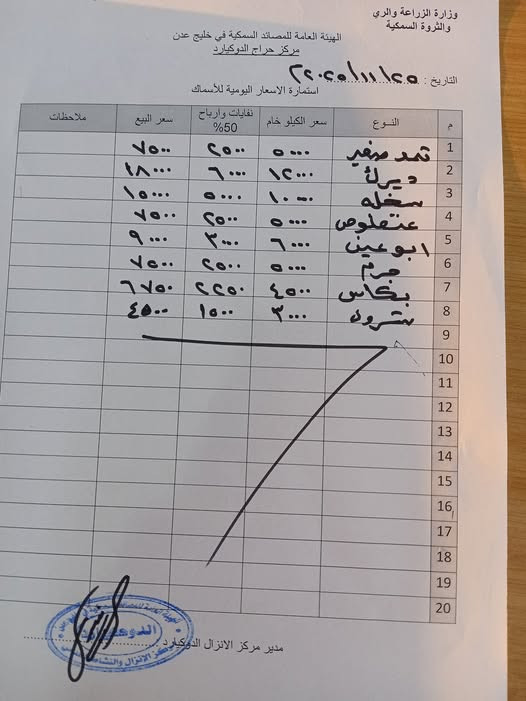 وزارة الزراعة والري
والثروة السمكية
الهيئة العامة للمصائد السمكية في خليج عدن
مركز حراج الدوكيارد
التاريخ : ٢٠٢٥/١١/٢٥م
استمارة الاسعار اليومية للأسماك
م النوع سعر الكيلو خام نفايات وارباح 50% سعر البيع ملاحظات
1 ثمد صغير ٥٠٠٠ ٢٥٠٠ ٧٥٠٠
2 ديرك ١٢٠٠٠ ٦٠٠٠ ١٨٠٠٠
3 سخله ١٠٠٠٠ ٥٠٠٠ ١٥٠٠٠
4 عنفلوص ٥٠٠٠ ٢٥٠٠ ٧٥٠٠
5 ابو عين ٦٠٠٠ ٣٠٠٠ ٩٠٠٠
6 ٥٠٠٠ ٢٥٠٠ ٧٥٠٠
7 بكاس ٤٥٠٠ ٢٢٥٠ ٦٧٥٠
8 شروه ٣٠٠٠ ١٥٠٠ ٤٥٠٠
9
10
11
12
13
14
15
16
17
18
19
20
مدير مركز الانزال الدوكيارد
الدوكيارد